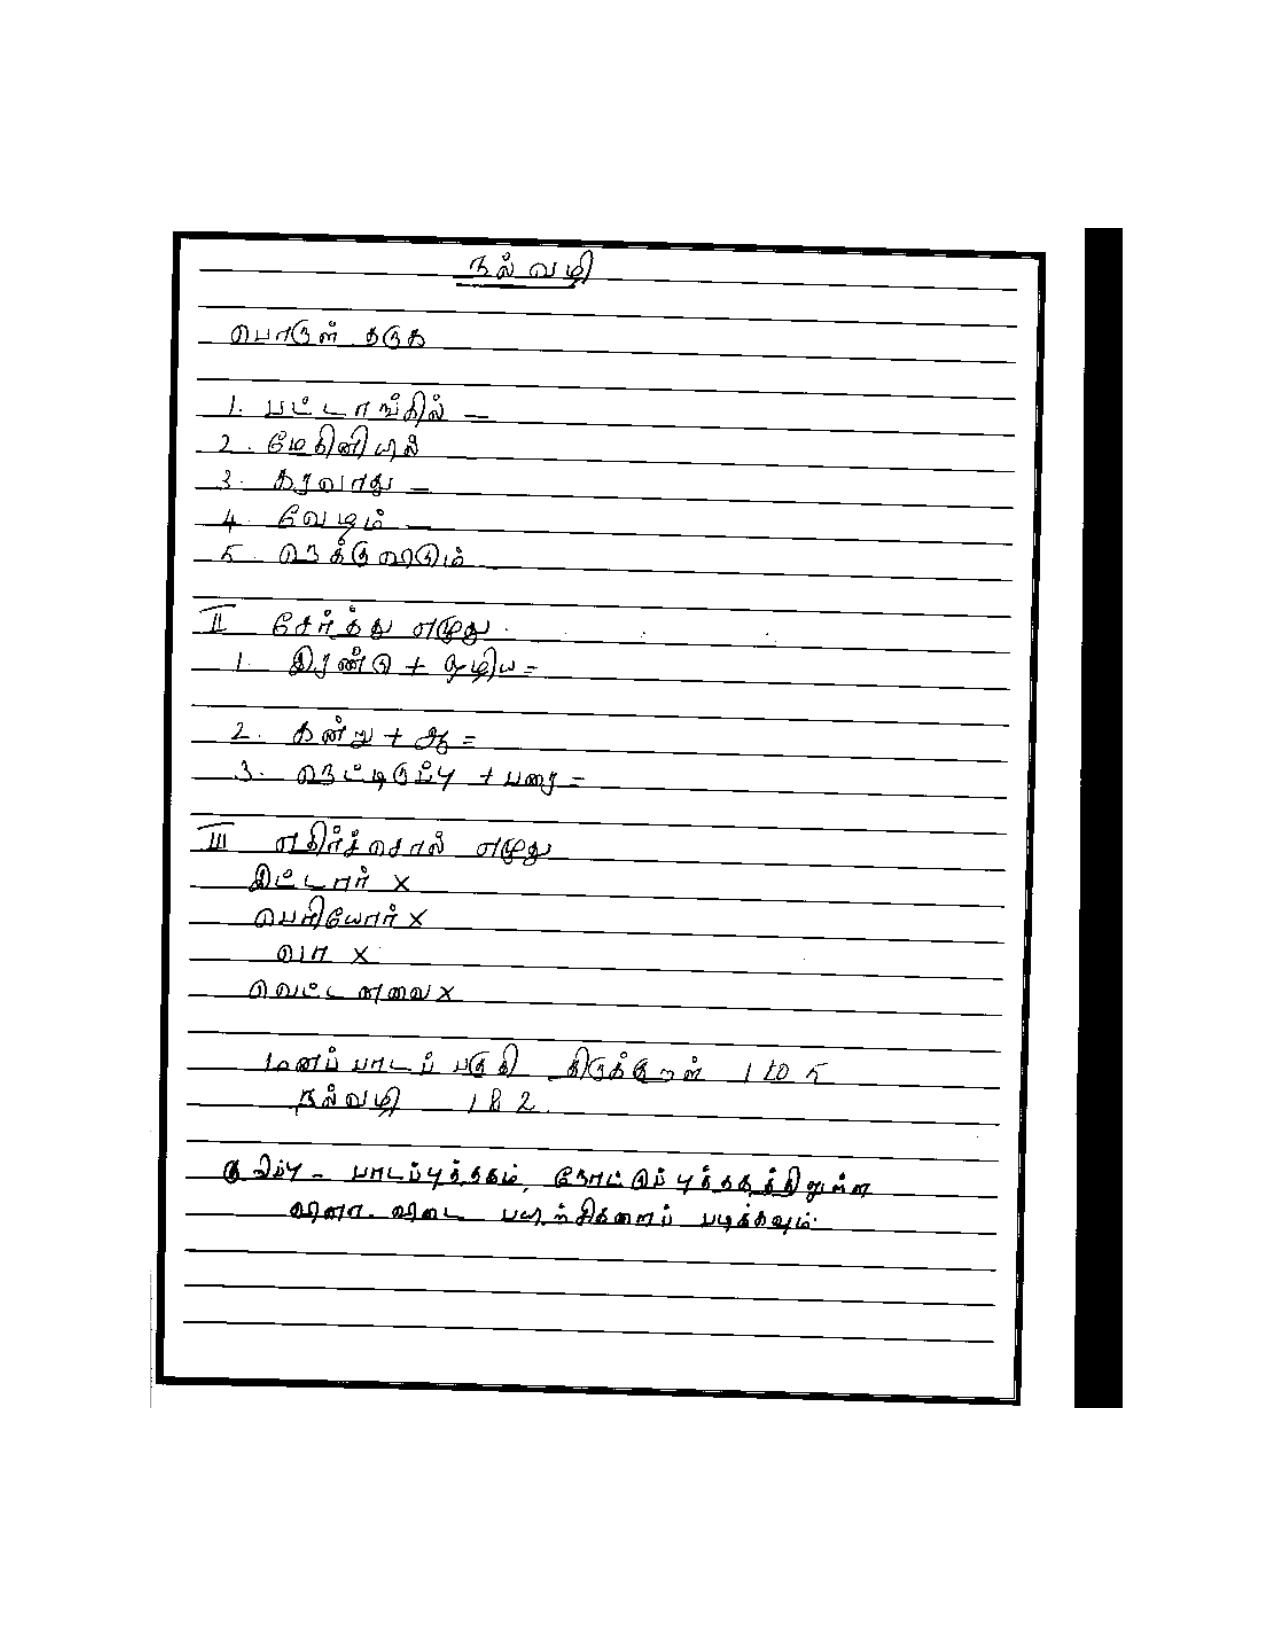 நல்வழி
பொருள் தருக
1. பட்டாங்கில் —
2. மேதினியில்
3. கரவாது —
4. வேழம் —
5. நெக்குவிடும்
II சேர்த்து எழுது
1. இரண்டு + ஒழிய =
2. கன்று + ஆ =
3. நெட்டிருப்பு + பறை =
III எதிர்ச்சொல் எழுது
இட்டார் ×
பெரியோர் ×
வா ×
வெட்டனவை ×
மனப்பாடப் பகுதி திருக்குறள் 1 to 5
நல்வழி 1 & 2.
குறிப்பு – பாடப்புத்தகம், நோட்டுப்புத்தகத்திலுள்ள
வினா விடை பயிற்சிகளைப் படிக்கவும்.